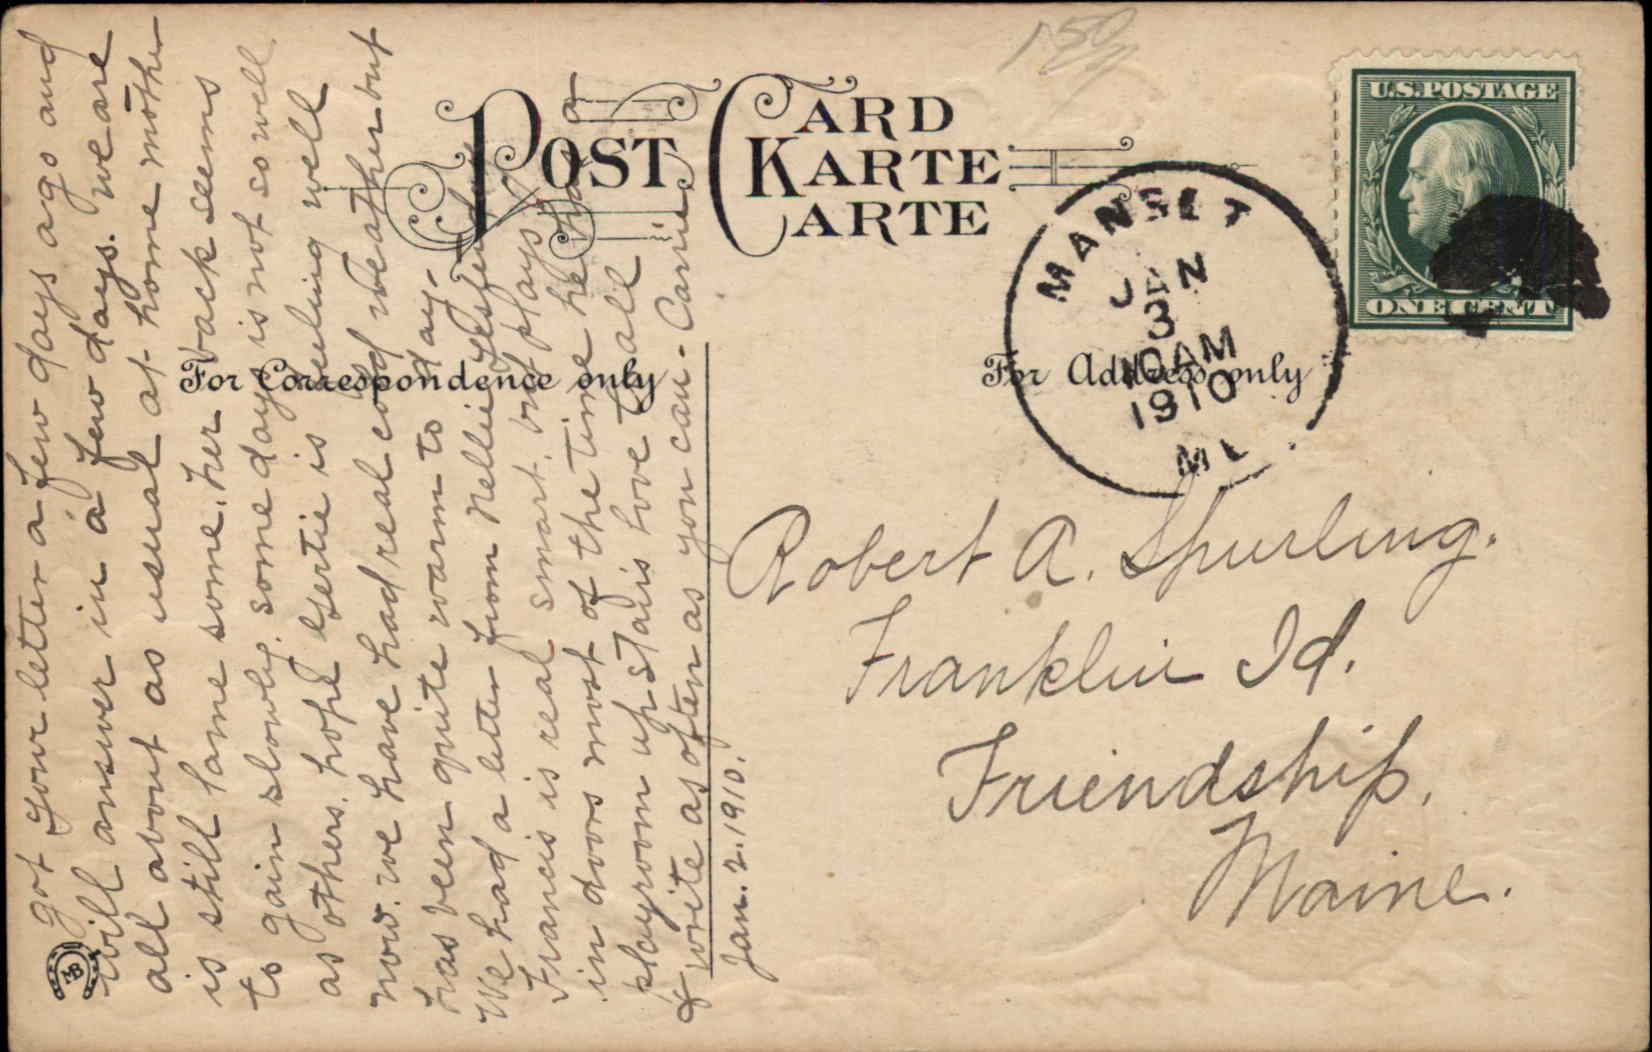 POST CARD
KARTE
CARTE
U.S. POSTAGE
ONE CENT
MANSET
JAN
3
10 AM
1910
ME
For Correspondence only
For Address only
Robert A. Spurling.
Franklin Id.
Friendship,
Maine.
Jan. 2. 1910.
got your letter a few days ago and
will answer in a few days. we are
all about as usual at home mother
is still lame some. her back seems
to gain slowly. some days is not so well
as others. hope Gertie is feeling well
now. we have had real cold weather but
has been quite warm to day.
We had a letter from Nellie yesterday
Francis is real smart. but plays
in doors most of the time he has a
playroom up stairs love to all
& write as often as you can. Carrie
MB